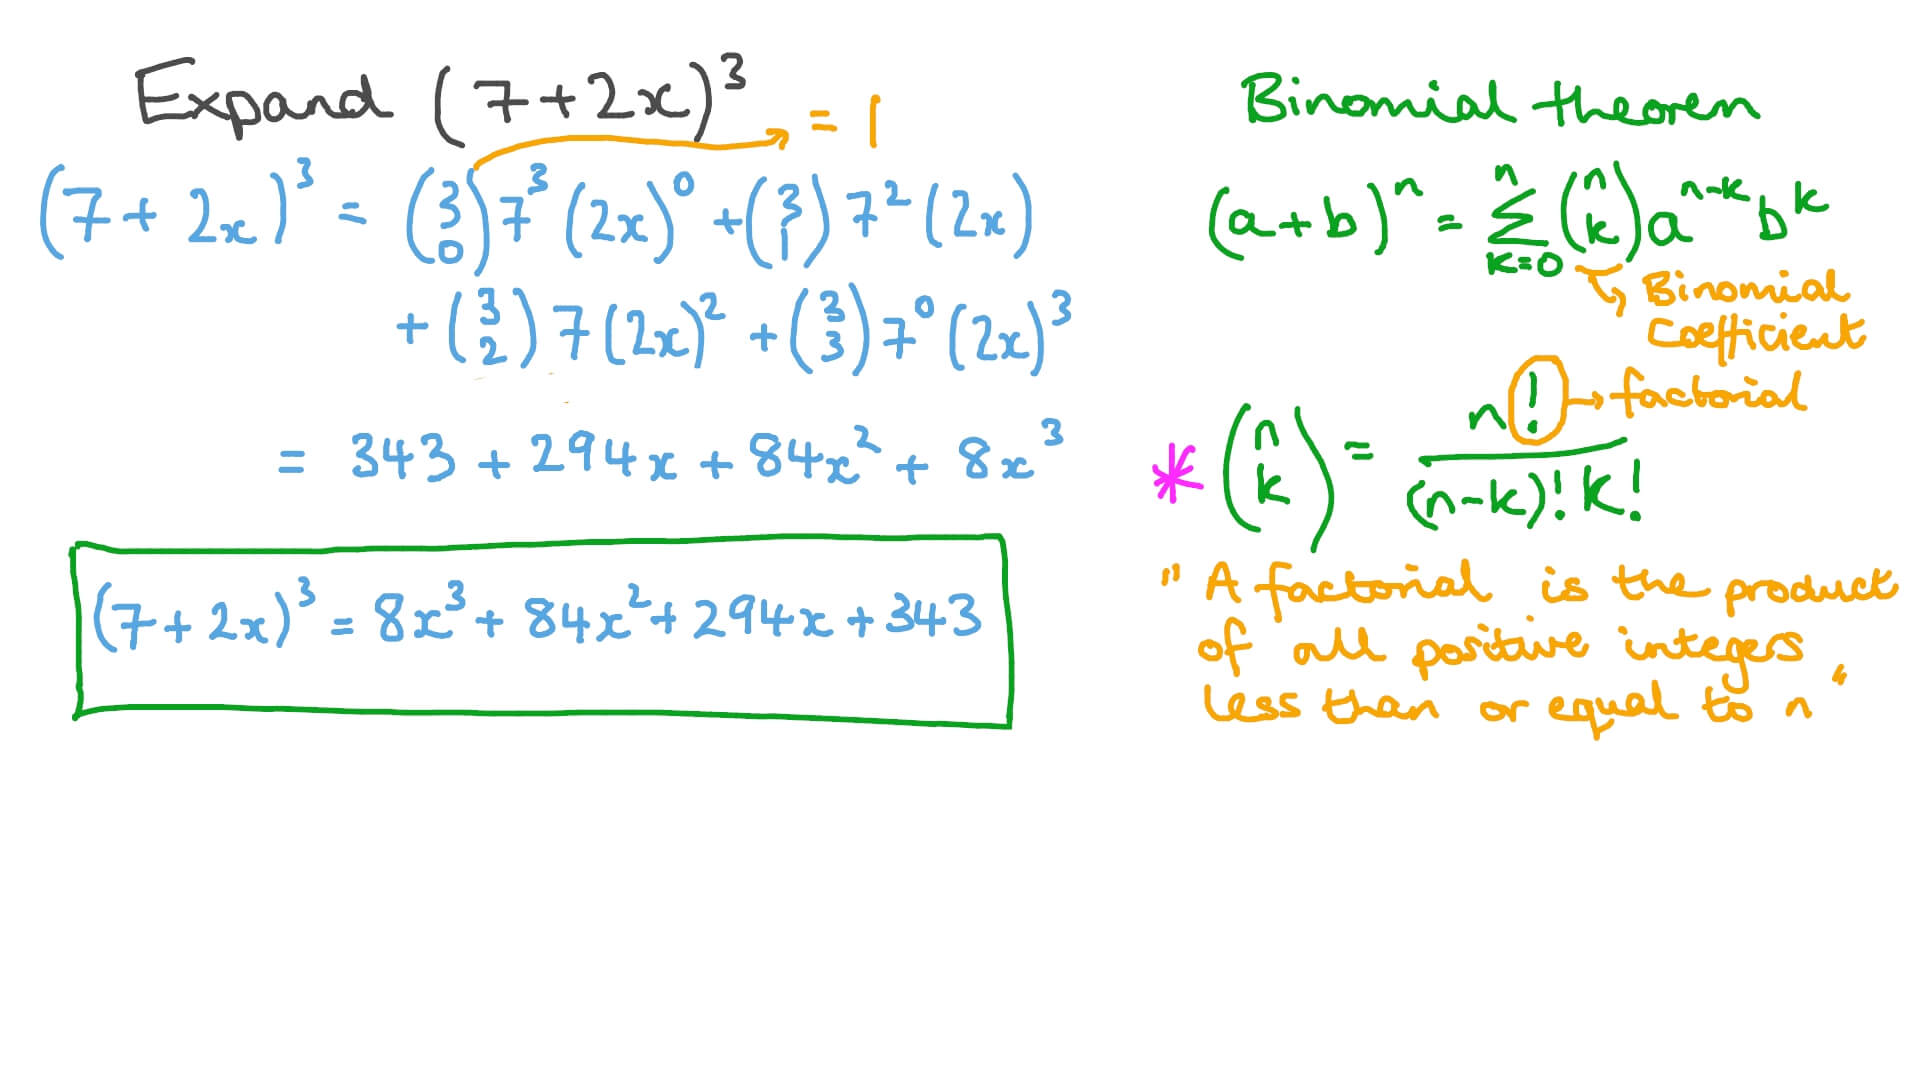 Expand (7+2x)³
= 1
(7+2x)³ = (3 0) 7³ (2x)⁰ + (3 1) 7² (2x)
+ (3 2) 7 (2x)² + (3 3) 7⁰ (2x)³
= 343 + 294x + 84x² + 8x³
(7+2x)³ = 8x³ + 84x² + 294x + 343
Binomial theorem
(a+b)ⁿ = Σ n k=0 (n k) aⁿ⁻ᵏ bᵏ
Binomial
Coefficient
* (n k) = n! / (n-k)! k!
factorial
" A factorial is the product
of all positive integers
less than or equal to n "